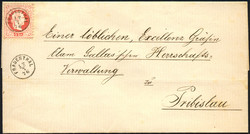 Einer löblichen, Excellenz Grafen
Clam Gallas'schen Herrschafts-
Verwaltung
zu
Pribislau